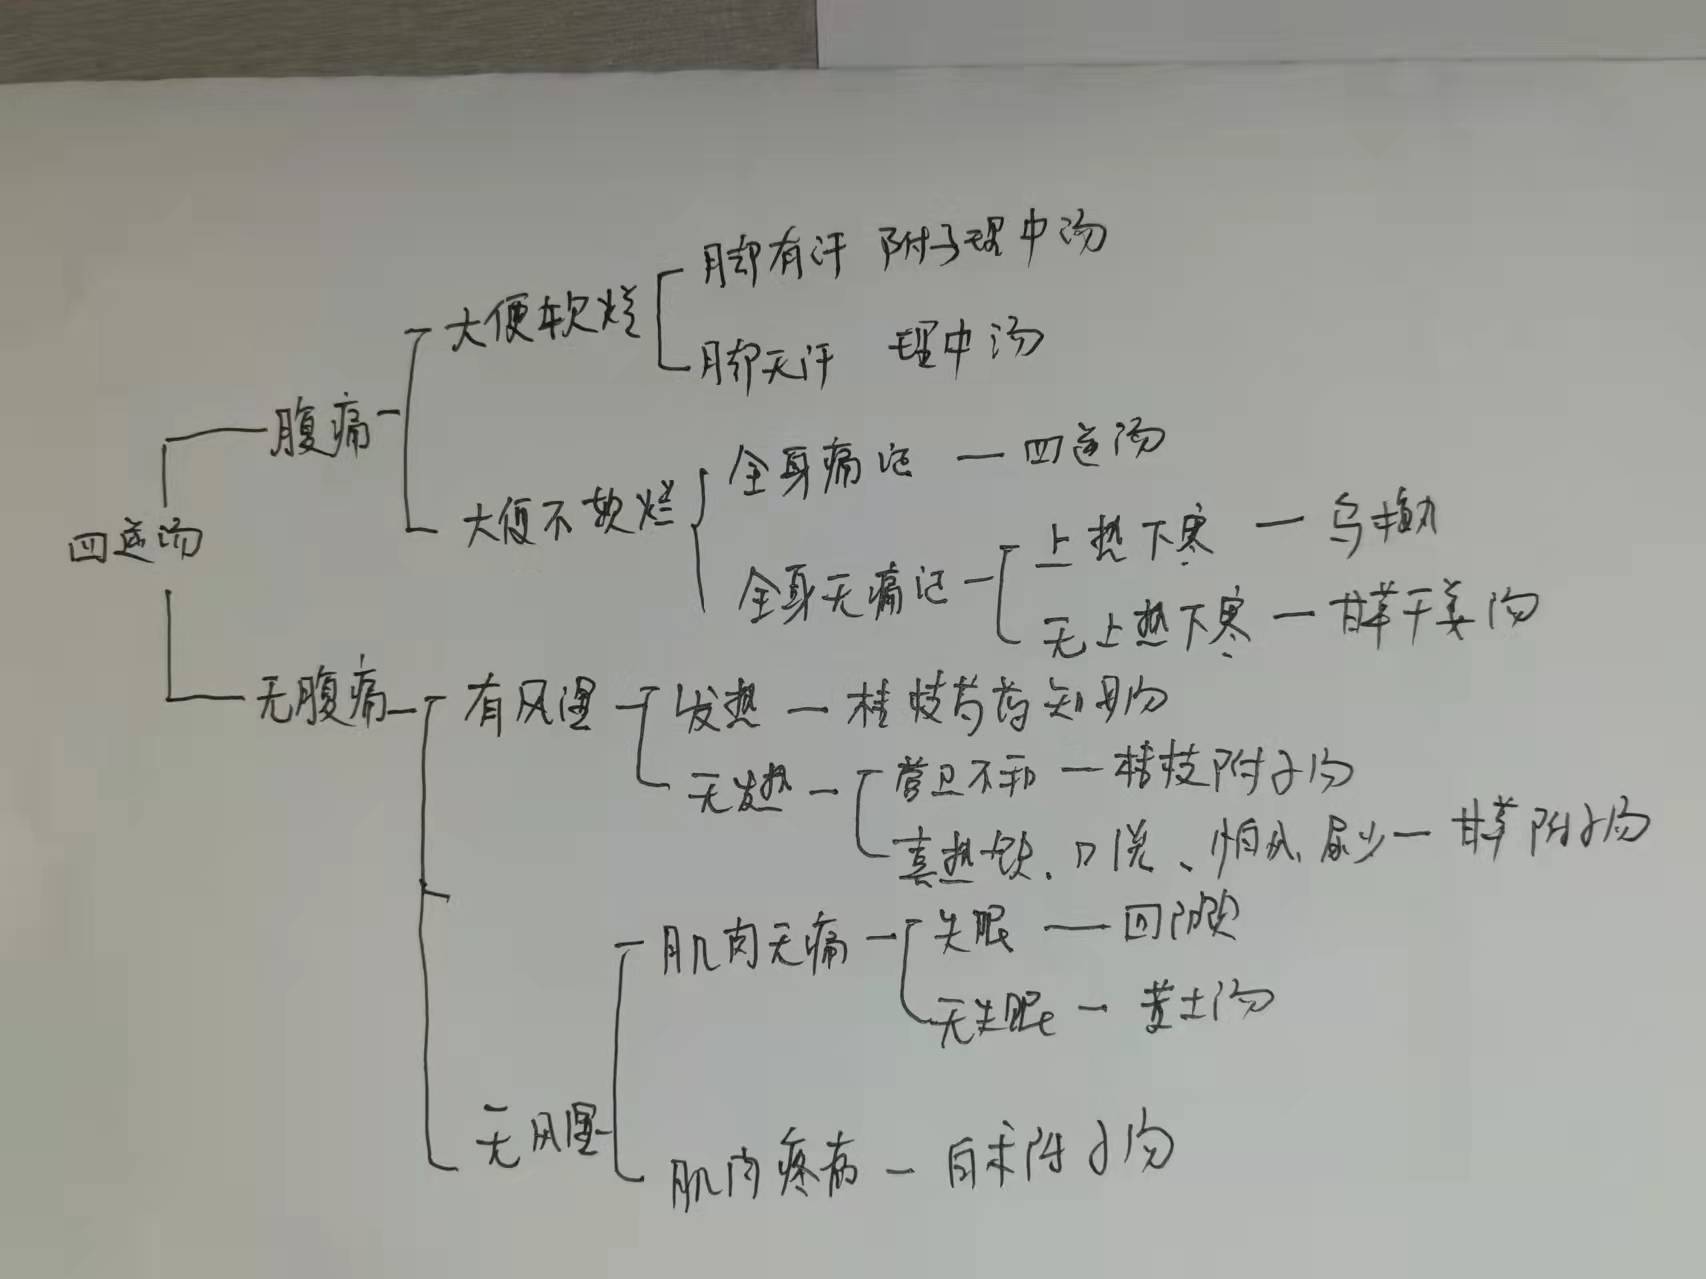 脚有汗 附子理中汤
大便软烂
脚无汗 理中汤
腹痛
全身痛 — 四逆汤
大便不软烂
上热下寒 — 乌梅丸
四逆汤
全身无痛 —
无上热下寒 — 甘草干姜汤
无腹痛
有风湿
发热 — 桂枝芍药知母汤
无发热 —
营卫不和 — 桂枝附子汤
喜热饮、口淡、怕风、尿少 — 甘草附子汤
肌肉无痛 —
失眠 — 回阳饮
无失眠 — 黄土汤
无风湿
肌肉疼痛 — 白术附子汤